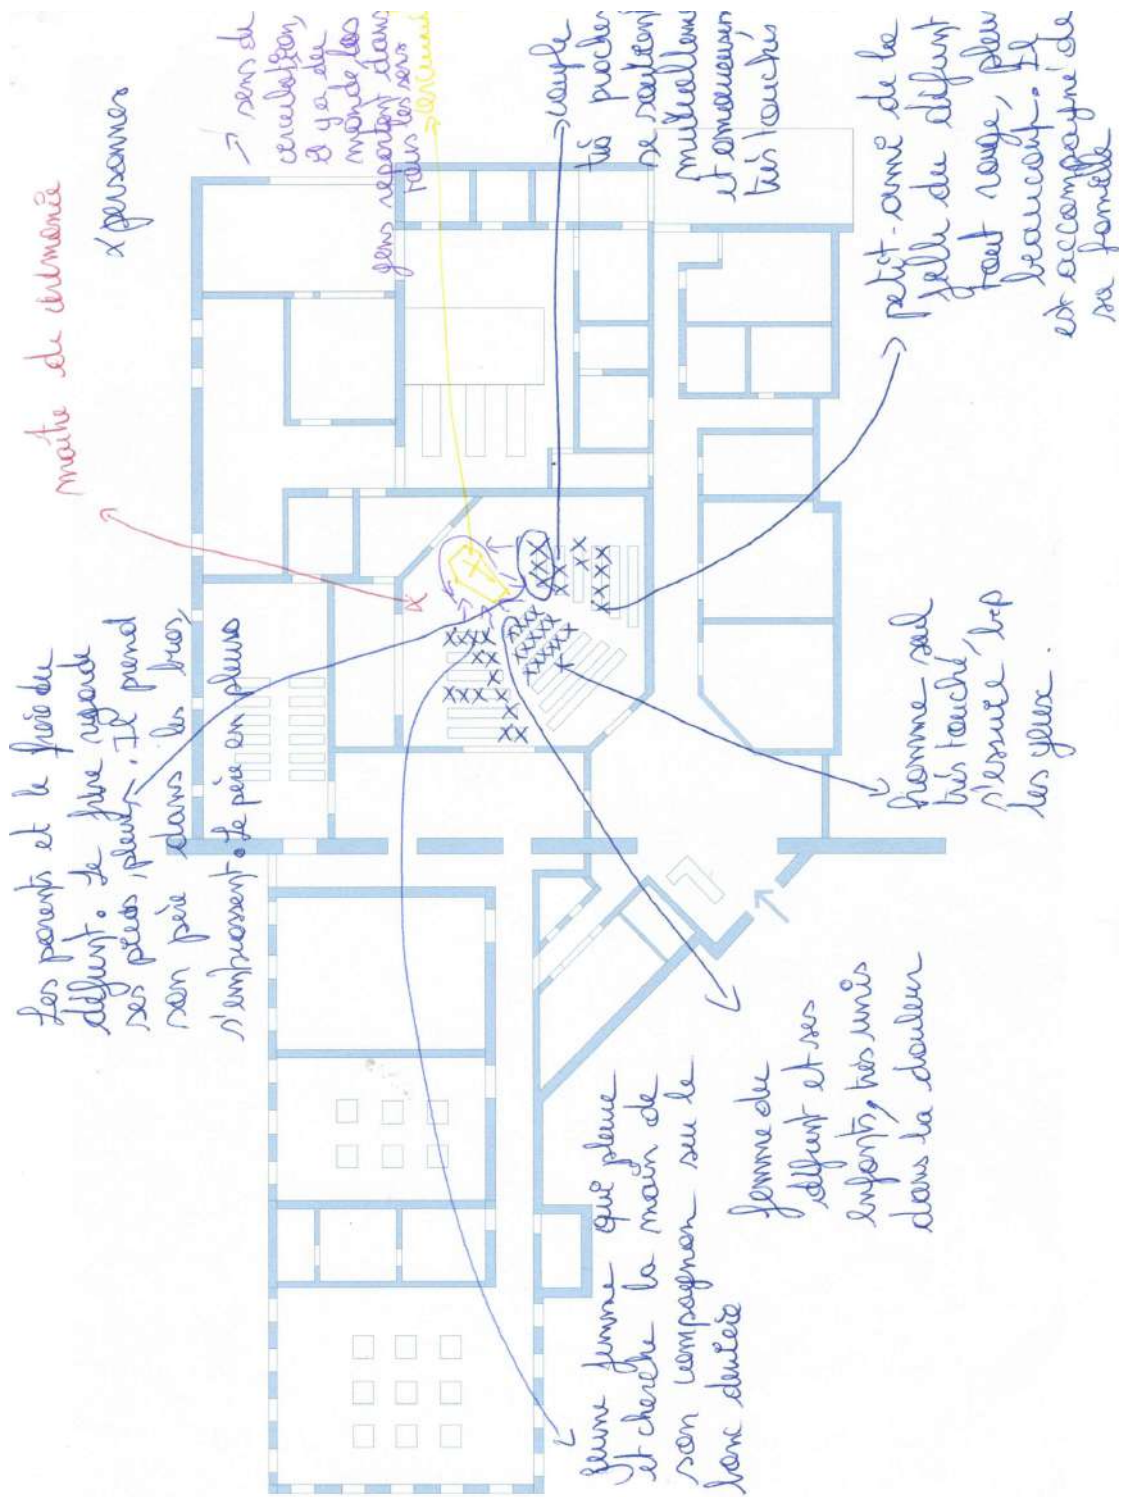 maître de cérémonie
x personnes
→ sens de
circulation,
il y a du
monde, les
gens repartent dans
tous les sens
→ cercueil
→ couple
très proches
se soutient
mutuellement
et amoureusement
très touchés
petit-ami de la
fille du défunt
tout rouge, pleure
beaucoup. Il
est accompagné de
sa famille
Les parents et le frère du
défunt. Le frère regarde
ses pieds, pleure. Il prend
son père dans les bras,
s'embrassent. Le père en pleurs
homme seul
très touché,
s'essuie bcp
les yeux.
femme du
défunt et ses
enfants, très unis
dans la douleur
jeune femme qui pleure
et cherche la main de
son compagnon sur le
banc derrière